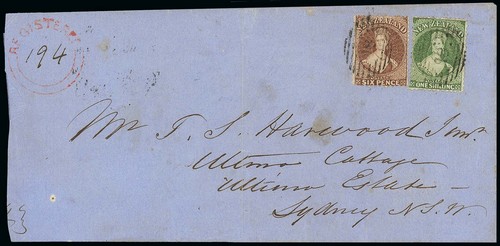 REGISTERED
194
NEW ZEALAND
SIX PENCE
NEW ZEALAND
ONE SHILLING
Mr T. S. Harwood Junr.
Ultimo Cottage
Ultimo Estate —
Sydney N.S.W.